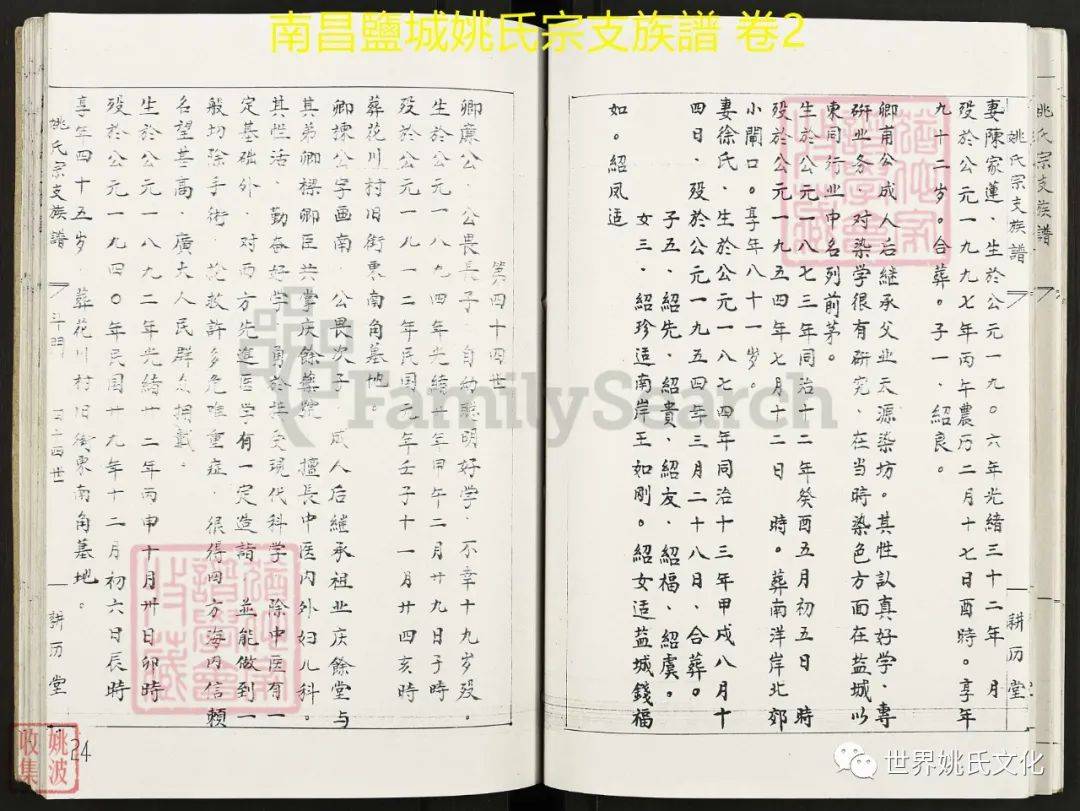 南昌鹽城姚氏宗支族譜 卷2
姚氏宗支族譜
姚氏宗支族譜
耕历堂
妻陳家蓮．生於公元一九○六年光緒三十二年　月
殁於公元一九九七年丙午農历二月十七日酉時。享年
九十二岁。合葬。子一．紹良。
卿甫公成人后继承父业天源染坊。其性認真好学．專
研业务．对染学很有研究．在当時染色方面在盐城以
東同行业中名列前茅。
生於公元一八七三年同治十二年癸酉五月初五日　時
殁於公元一九五四年七月十二日　時。葬南洋岸北郊
小閘口。享年八十一岁。
妻徐氏．生於公元一八七四年同治十三年甲戌八月十
四日．殁於公元一九五四年三月二十八日．合葬。
子五．紹先．紹貴．紹友．紹福．紹虞。
女三．紹珍适南岸王如刚。紹女适盐城錢福
如。紹凤适
第四十四世
卿廉公．公畏長子．自幼聰明好学．不幸十九岁殁。
生於公元一八九四年光緒廿年甲午二月廿九日子時
殁於公元一九一二年民国元年壬子十一月廿四亥時
葬花川村旧街東南角墓地。
卿謙公字画南．公畏次子．成人后继承祖业庆餘堂与
其弟卿樑卿臣共掌庆餘藥院．擅長中医内外妇儿科。
其性活．勤奋好学．勇於探究現代科学．除中医有一
定基础外．对西方先進医学有一定造詣．並能做到一
般切除手術．抢救許多危难重症．很得四方海内信賴
名望甚高．廣大人民群众拥戴．
生於公元一八九二年光緒廿二年丙申十月卅日卯時
殁於公元一九四○年民国廿九年十二月初六日辰時
享年四十五岁．葬花川村旧街東南角墓地。
姚氏宗支族譜
斗門
四十四世
耕历堂
24
姚波
收集
FamilySearch
世界姚氏文化